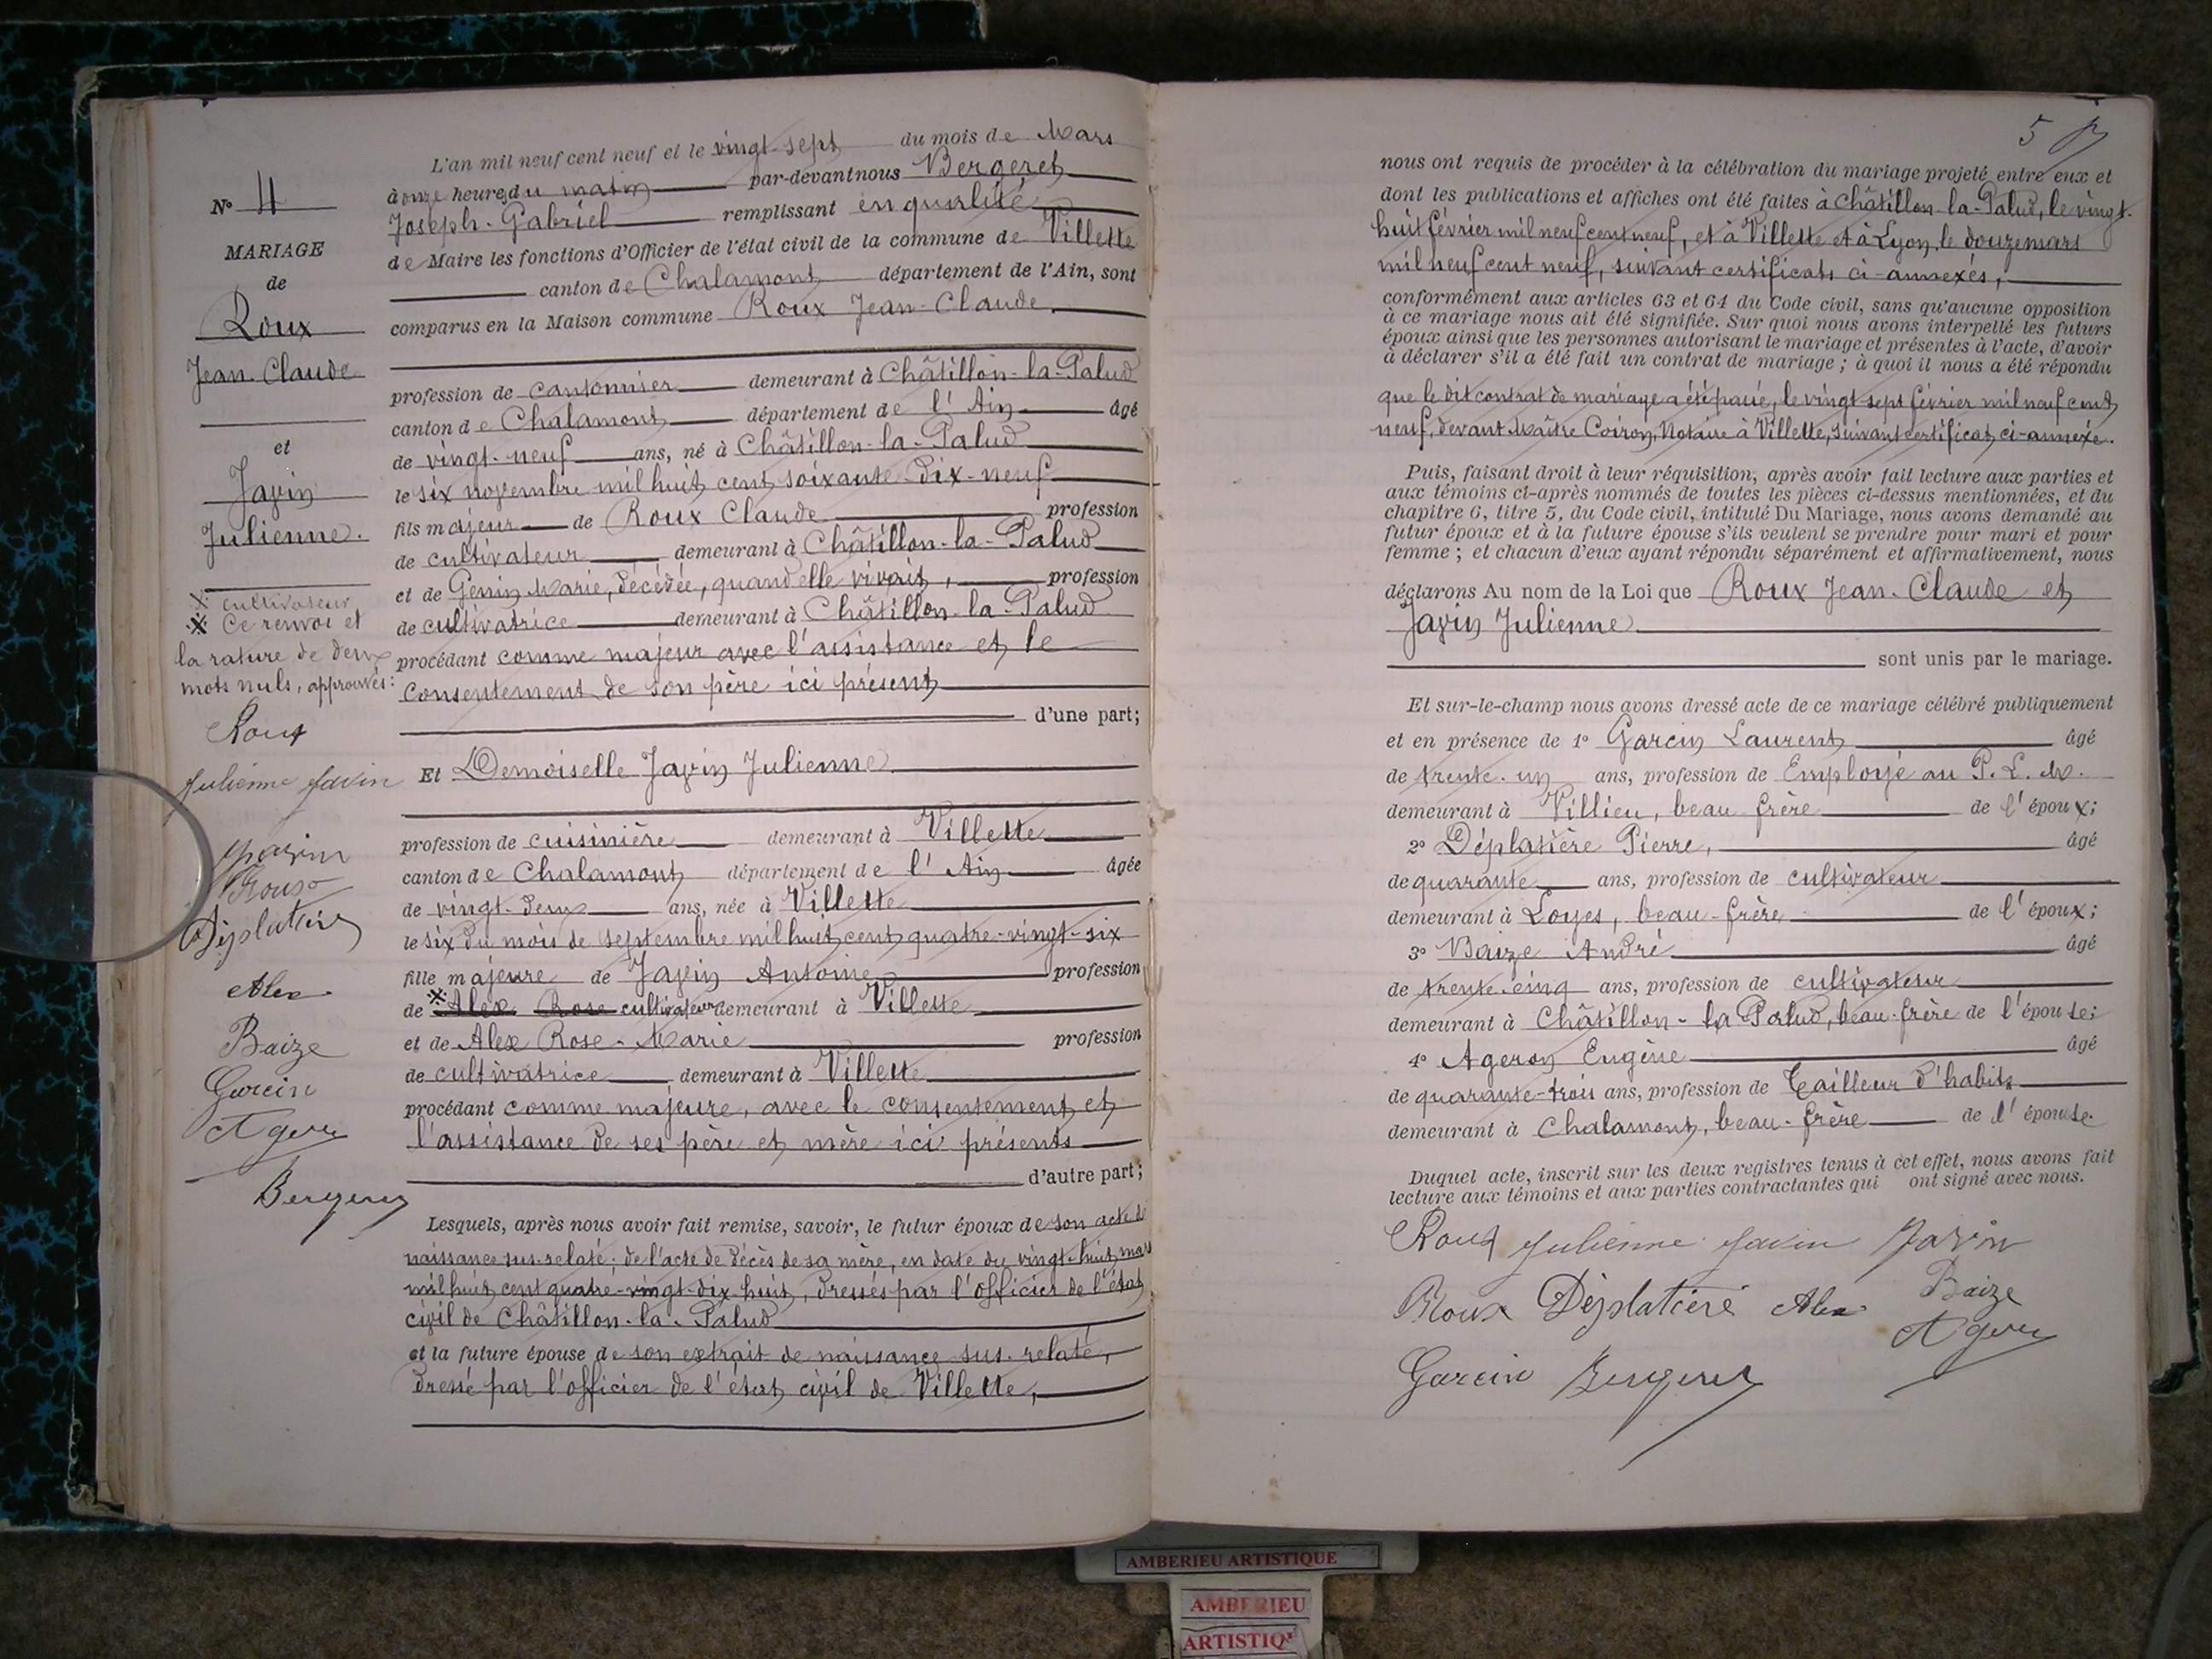 N° 4
MARIAGE
de
Roux
Jean-Claude
et
Javin
Julienne.
※ cultivateur
※ Ce renvoi et
la rature de deux
mots nuls, approuvés:
Roux
Julienne Javin
Javin
Roux
Déplatière
Alex
Baize
Garcin
Ageron
Bergeret
L'an mil neuf cent neuf et le vingt-sept du mois de Mars
à onze heures du matin par-devant nous Bergeret
Joseph-Gabriel remplissant en qualité
de Maire les fonctions d'Officier de l'état civil de la commune de Villette
canton de Chalamont département de l'Ain, sont
comparus en la Maison commune Roux Jean-Claude.
profession de cantonnier demeurant à Châtillon-la-Palud
canton de Chalamont département de l'Ain âgé
de vingt-neuf ans, né à Châtillon-la-Palud
le six novembre mil huit cent soixante-dix-neuf
fils majeur de Roux Claude profession
de cultivateur demeurant à Châtillon-la-Palud
et de Génin Marie, décédée, quand elle vivait, profession
de cultivatrice demeurant à Châtillon-la-Palud
procédant comme majeur avec l'assistance et le
consentement de son père ici présent
d'une part;
Et Demoiselle Javin Julienne
profession de cuisinière demeurant à Villette
canton de Chalamont département de l'Ain âgée
de vingt-deux ans, née à Villette
le six du mois de septembre mil huit cent quatre-vingt-six
fille majeure de Javin Antoine profession
de ※ Alex Rose cultivateur demeurant à Villette
et de Alex Rose-Marie profession
de cultivatrice demeurant à Villette
procédant comme majeure, avec le consentement et
l'assistance de ses père et mère ici présents
d'autre part;
Lesquels, après nous avoir fait remise, savoir, le futur époux de son acte de
naissance sus-relaté; de l'acte de décès de sa mère, en date du vingt-huit mai
mil huit cent quatre-vingt-dix-huit, dressés par l'officier de l'état
civil de Châtillon-la-Palud
et la future épouse de son extrait de naissance sus-relaté,
dressé par l'officier de l'état civil de Villette,
5
nous ont requis de procéder à la célébration du mariage projeté entre eux et
dont les publications et affiches ont été faites à Châtillon-la-Palud, le vingt-
huit février mil neuf cent neuf, et à Villette et à Lyon, le douze mars
mil neuf cent neuf, suivant certificats ci-annexés,
conformément aux articles 63 et 64 du Code civil, sans qu'aucune opposition
à ce mariage nous ait été signifiée. Sur quoi nous avons interpellé les futurs
époux ainsi que les personnes autorisant le mariage et présentes à l'acte, d'avoir
à déclarer s'il a été fait un contrat de mariage; à quoi il nous a été répondu
que le dit contrat de mariage a été passé, le vingt sept février mil neuf cent
neuf, devant Maître Coiron, Notaire à Villette, suivant certificat ci-annexé.
Puis, faisant droit à leur réquisition, après avoir fait lecture aux parties et
aux témoins ci-après nommés de toutes les pièces ci-dessus mentionnées, et du
chapitre 6, titre 5, du Code civil, intitulé Du Mariage, nous avons demandé au
futur époux et à la future épouse s'ils veulent se prendre pour mari et pour
femme; et chacun d'eux ayant répondu séparément et affirmativement, nous
déclarons Au nom de la Loi que Roux Jean-Claude et
Javin Julienne
sont unis par le mariage.
Et sur-le-champ nous avons dressé acte de ce mariage célébré publiquement
et en présence de 1° Garcin Laurent âgé
de trente-un ans, profession de Employé au P. L. M.
demeurant à Villieu, beau frère de l'époux;
2° Déplatière Pierre, âgé
de quarante ans, profession de cultivateur
demeurant à Loyes, beau-frère de l'époux;
3° Baize André âgé
de trente-cinq ans, profession de cultivateur
demeurant à Châtillon-la Palud, beau-frère de l'épouse;
4° Ageron Eugène âgé
de quarante-trois ans, profession de Tailleur d'habits
demeurant à Chalamont, beau-frère de l'épouse.
Duquel acte, inscrit sur les deux registres tenus à cet effet, nous avons fait
lecture aux témoins et aux parties contractantes qui ont signé avec nous.
Roux Julienne Javin Javin
Roux Déplatière Alex Baize
Ageron
Garcin Bergeret
AMBERIEU ARTISTIQUE
AMBERIEU
ARTISTIQ